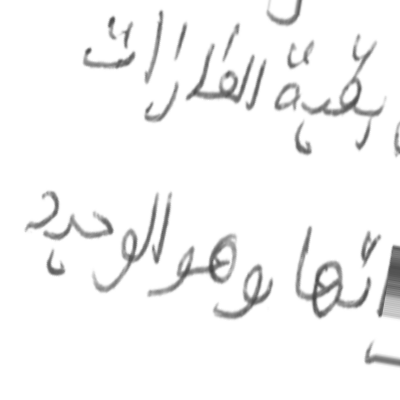 بقية القارات
تها وهو الوحيد